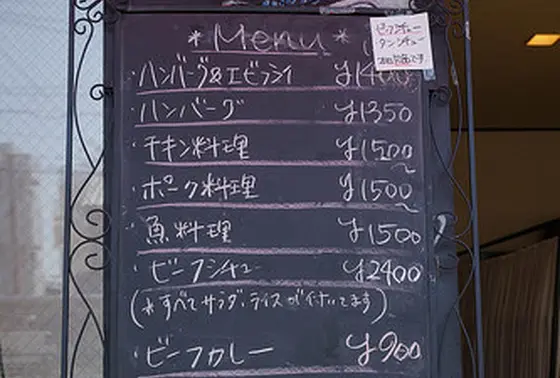 * Menu *
ビーフシチュー
タンシチュー
・ハンバーグ&エビフライ ¥1400
・ハンバーグ ¥1350
・チキン料理 ¥1500~
・ポーク料理 ¥1500~
・魚料理 ¥1500
・ビーフシチュー ¥2400
(*すべてサラダ、ライスが付いてます)
・ビーフカレー ¥900